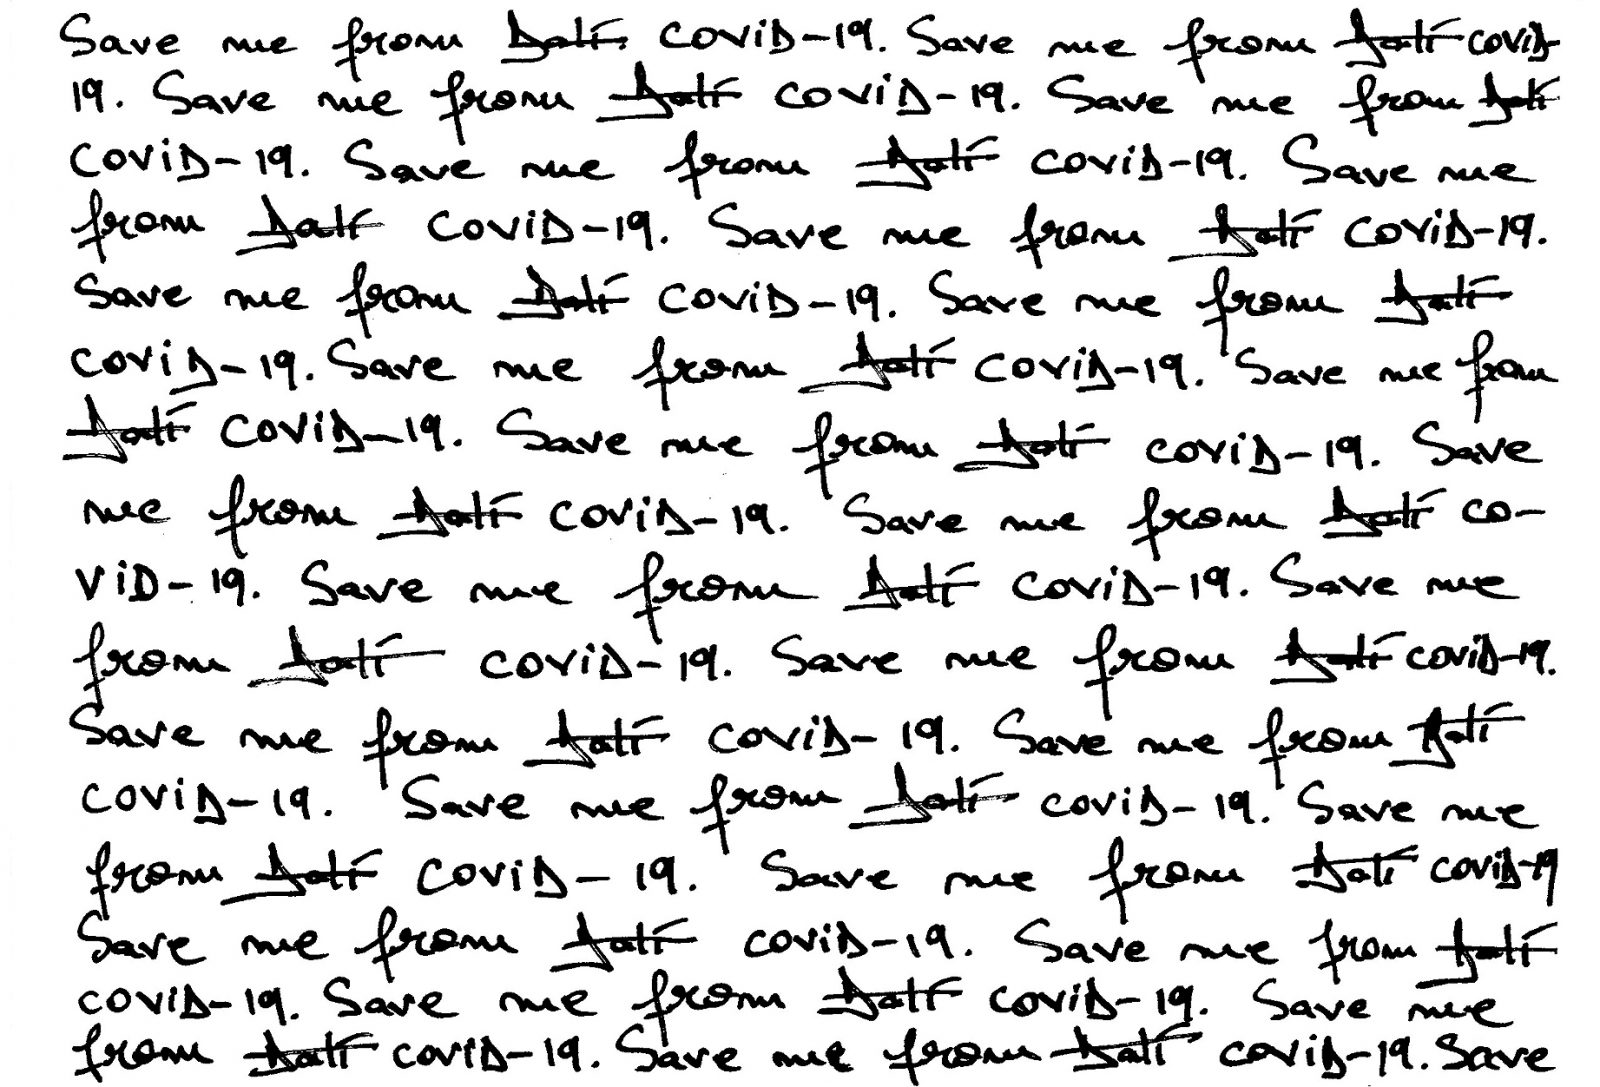 Save me from Dalí COVID-19. Save me from Dalí COVID-
19. Save me from Dalí COVID-19. Save me from Dalí
COVID-19. Save me from Dalí COVID-19. Save me
from Dalí COVID-19. Save me from Dalí COVID-19.
Save me from Dalí COVID-19. Save me from Dalí
COVID-19. Save me from Dalí COVID-19. Save me from
Dalí COVID-19. Save me from Dalí COVID-19. Save
me from Dalí COVID-19. Save me from Dalí CO-
VID-19. Save me from Dalí COVID-19. Save me
from Dalí COVID-19. Save me from Dalí COVID-19.
Save me from Dalí COVID-19. Save me from Dalí
COVID-19. Save me from Dalí COVID-19. Save me
from Dalí COVID-19. Save me from Dalí COVID-19
Save me from Dalí COVID-19. Save me from Dalí
COVID-19. Save me from Dalí COVID-19. Save me
from Dalí COVID-19. Save me from Dalí COVID-19. Save